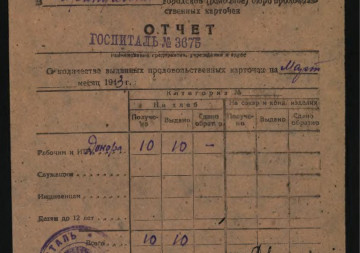 городское (районное) бюро продоволь-
ственных карточек
ОТЧЕТ
ГОСПИТАЛЬ № 3675
наименование предприятия, учреждения и адрес
О количестве выданных продовольственных карточек на Март
месяц 1943 г.
Категория №
На хлеб
На сахар и конд. изделия
Получе-
но
Выдано
Сдано
обратно
Получе-
но
Выдано
Сдано
обратно
Рабочим и Доноры 10 10 —
Служащим
Иждивенцам
Детям до 12 лет
Всего 10 10